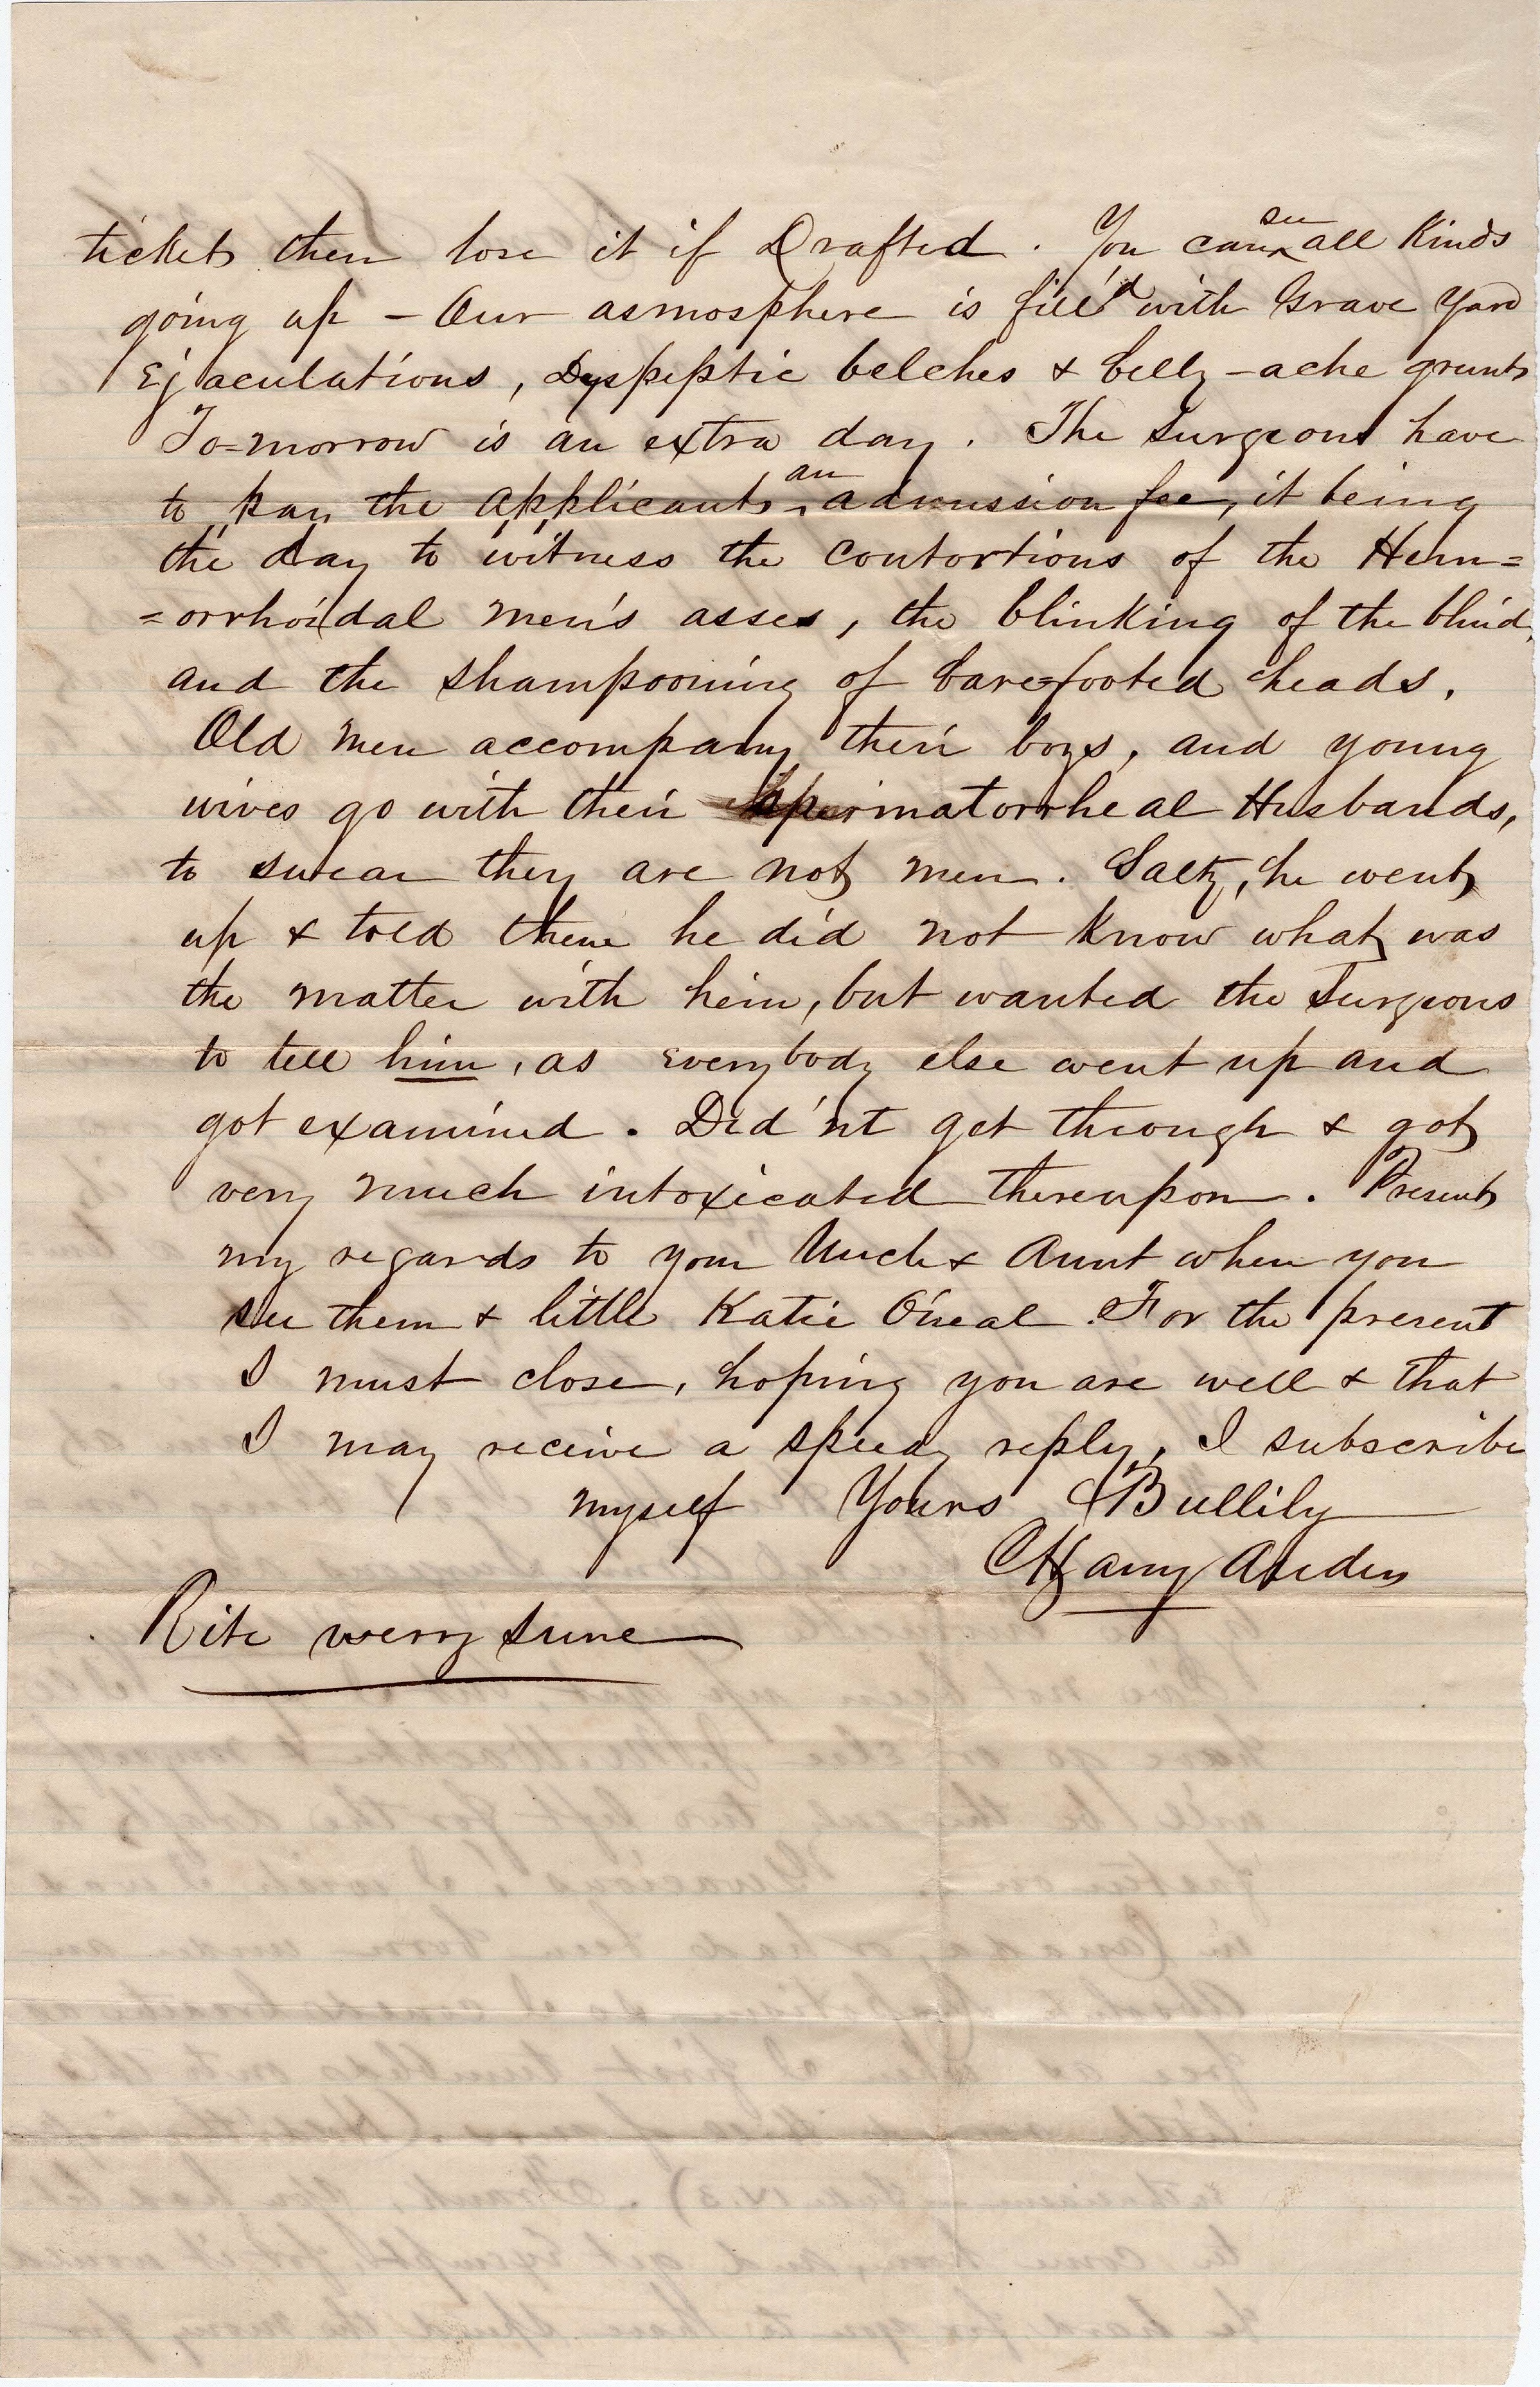 ticket then lose it if Drafted. You can see all Kinds
going up – Our asmosphere is fill'd with Grave Yard
Ejaculations, Dyspeptic belches & belly-ache grunts
To=morrow is an extra day. The Surgeons have
to pay the applicants an admission fee, it being
the day to witness the contortions of the Hem=
=orrhoidal men's asses, the blinking of the blind,
and the shampooning of bare=footed heads.
Old men accompany their boys, and young
wives go with their Spermatorrheal Husbands,
to swear they are not men. Saltz, he went
up & told them he did not Know what was
the matter with him, but wanted the Surgeons
to tell him, as Everybody else went up and
got examined. Did'nt get through & got
very much intoxicated thereupon. Present
my regards to your Uncle & Aunt when you
see them & little Katie O'neal. For the present
I must close, hoping you are well & that
I may receive a speedy reply, I subscribe
myself Yours Bullily
Harry
Rite werry sune